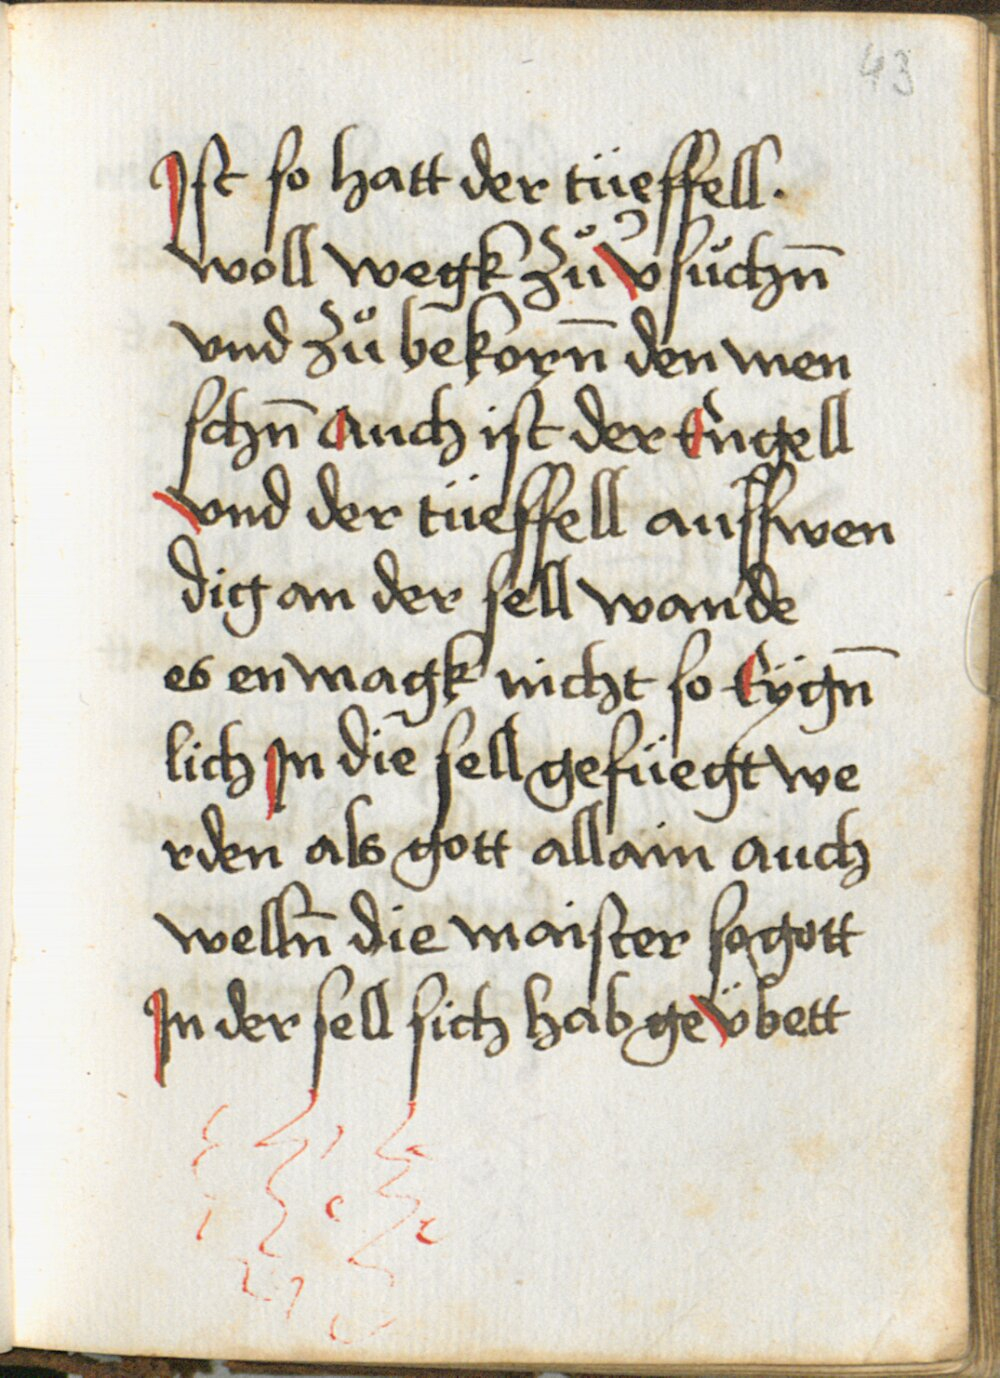 43
Ist so hatt der tüeffell.
woll wegk zů v̉sůchn̄
vnd zů bekorn̄ den men
schn̄ Auch ist der Engell
vnd der tüeffell auffwen
dig an der sell wande
es en magk nicht so Eÿgn̄
lich In die sell gefüegt we
rden als gott allain auch
welln̄ die maister so gott
In der sell sich hab gev̈bett